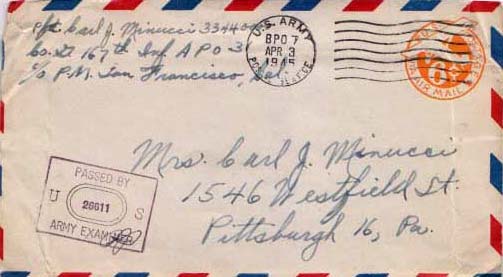 Pfc Carl J. Minucci 334402
167th Inf APO 3
c/o P.M. San Francisco, Cal.
U.S. ARMY
APR 3
1945
6¢
AIR MAIL
Mrs. Carl J. Minucci
1546 Westfield St.
Pittsburgh 16, Pa.
PASSED BY
U 26611 S
ARMY EXAMINER